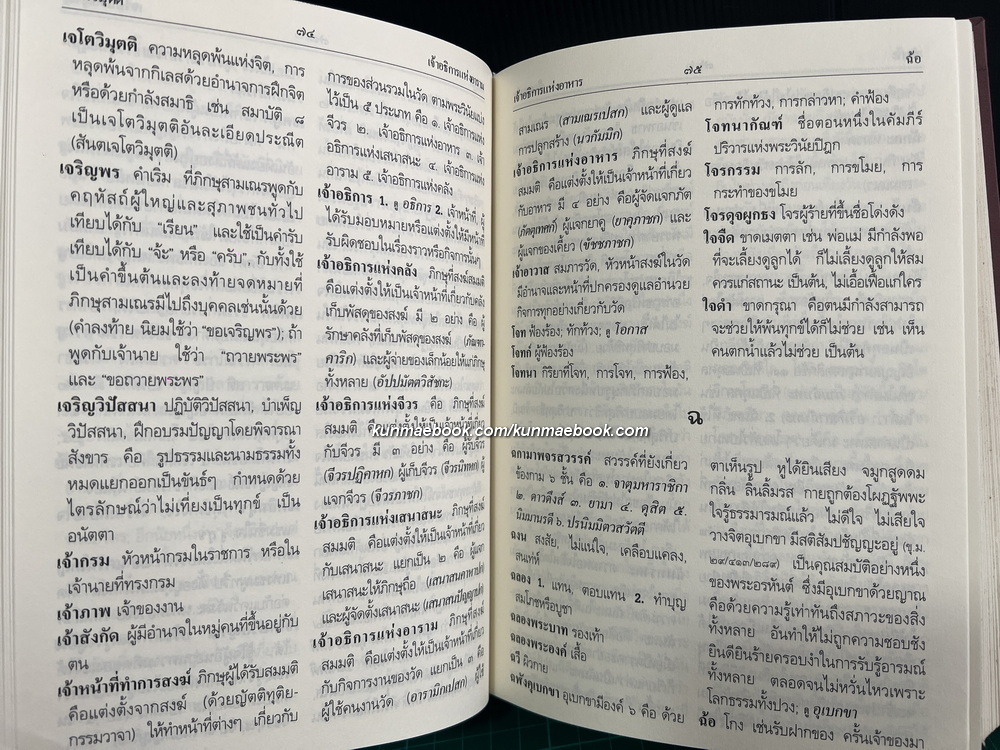 ๗๔
เจ้าอธิการแห่งอาราม
เจโตวิมุตติ ความหลุดพ้นแห่งจิต, การ
หลุดพ้นจากกิเลสด้วยอำนาจการฝึกจิต
หรือด้วยกำลังสมาธิ เช่น สมาบัติ ๘
เป็นเจโตวิมุตติอันละเอียดประณีต
(สันตเจโตวิมุตติ)
เจริญพร คำเริ่ม ที่ภิกษุสามเณรพูดกับ
คฤหัสถ์ผู้ใหญ่และสุภาพชนทั่วไป
เทียบได้กับ “เรียน” และใช้เป็นคำรับ
เทียบได้กับ “จ้ะ” หรือ “ครับ”, กับทั้งใช้
เป็นคำขึ้นต้นและลงท้ายจดหมายที่
ภิกษุสามเณรมีไปถึงบุคคลเช่นนั้นด้วย
(คำลงท้าย นิยมใช้ว่า “ขอเจริญพร”); ถ้า
พูดกับเจ้านาย ใช้ว่า “ถวายพระพร”
และ “ขอถวายพระพร”
เจริญวิปัสสนา ปฏิบัติวิปัสสนา, บำเพ็ญ
วิปัสสนา, ฝึกอบรมปัญญาโดยพิจารณา
สังขาร คือ รูปธรรมและนามธรรมทั้ง
หมดแยกออกเป็นขันธ์ๆ กำหนดด้วย
ไตรลักษณ์ว่าไม่เที่ยงเป็นทุกข์ เป็น
อนัตตา
เจ้ากรม หัวหน้ากรมในราชการ หรือใน
เจ้านายที่ทรงกรม
เจ้าภาพ เจ้าของงาน
เจ้าสังกัด ผู้มีอำนาจในหมู่คนที่ขึ้นอยู่กับ
ตน
เจ้าหน้าที่ทำการสงฆ์ ภิกษุผู้ได้รับสมมติ
คือแต่งตั้งจากสงฆ์ (ด้วยญัตติทุติย-
กรรมวาจา) ให้ทำหน้าที่ต่างๆ เกี่ยวกับ
การของส่วนรวมในวัด ตามพระวินัยแบ่ง
ไว้เป็น ๕ ประเภท คือ ๑. เจ้าอธิการแห่ง
จีวร ๒. เจ้าอธิการแห่งอาหาร ๓. เจ้า
อธิการแห่งเสนาสนะ ๔. เจ้าอธิการแห่ง
อาราม ๕. เจ้าอธิการแห่งคลัง
เจ้าอธิการ 1. ดู อธิการ 2. เจ้าหน้าที่, ผู้
ได้รับมอบหมายหรือแต่งตั้งให้มีหน้าที่
รับผิดชอบในเรื่องราวหรือกิจการนั้นๆ
เจ้าอธิการแห่งคลัง ภิกษุที่สงฆ์สมมติ
คือแต่งตั้งให้เป็นเจ้าหน้าที่เกี่ยวกับคลัง
เก็บพัสดุของสงฆ์ มี ๒ อย่าง คือ ผู้
รักษาคลังที่เก็บพัสดุของสงฆ์ (ภัณฑา-
คาริก) และผู้จ่ายของเล็กน้อยให้แก่ภิกษุ
ทั้งหลาย (อัปปมัตตวิสัชกะ)
เจ้าอธิการแห่งจีวร คือ ภิกษุที่สงฆ์
สมมติ คือแต่งตั้งให้เป็นเจ้าหน้าที่เกี่ยว
กับจีวร มี ๓ อย่าง คือ ผู้รับจีวร
(จีวรปฏิคาหก) ผู้เก็บจีวร (จีวรนิทหก) ผู้
แจกจีวร (จีวรภาชก)
เจ้าอธิการแห่งเสนาสนะ ภิกษุที่สงฆ์
สมมติ คือแต่งตั้งให้เป็นเจ้าหน้าที่เกี่ยว
กับเสนาสนะ แยกเป็น ๒ คือ ผู้แจก
เสนาสนะให้ภิกษุถือ (เสนาสนคาหาปก)
และผู้จัดตั้งเสนาสนะ (เสนาสนปัญญาปก)
เจ้าอธิการแห่งอาราม ภิกษุที่สงฆ์
สมมติ คือแต่งตั้งให้เป็นเจ้าหน้าที่เกี่ยว
กับกิจการงานของวัด แยกเป็น ๓ คือ
ผู้ใช้คนงานวัด (อารามิกเปสก) ผู้ใช้
เจ้าอธิการแห่งอาหาร
๗๕
ฉ้อ
สามเณร (สามเณรเปสก) และผู้ดูแล
การปลูกสร้าง (นวกัมมิก)
เจ้าอธิการแห่งอาหาร ภิกษุที่สงฆ์
สมมติ คือแต่งตั้งให้เป็นเจ้าหน้าที่เกี่ยว
กับอาหาร มี ๔ อย่าง คือผู้จัดแจกภัต
(ภัตตุเทศก์) ผู้แจกยาคู (ยาคุภาชก) และ
ผู้แจกของเคี้ยว (ขัชชภาชก)
เจ้าอาวาส สมภารวัด, หัวหน้าสงฆ์ในวัด
มีอำนาจและหน้าที่ปกครองดูแลอำนวย
กิจการทุกอย่างเกี่ยวกับวัด
โจท ฟ้องร้อง; ทักท้วง; ดู โอกาส
โจทก์ ผู้ฟ้องร้อง
โจทนา กิริยาที่โจท, การโจท, การฟ้อง,
การทักท้วง, การกล่าวหา; คำฟ้อง
โจทนากัณฑ์ ชื่อตอนหนึ่งในคัมภีร์
ปริวารแห่งพระวินัยปิฎก
โจรกรรม การลัก, การขโมย, การ
กระทำของขโมย
โจรดุจผูกธง โจรผู้ร้ายที่ขึ้นชื่อโด่งดัง
ใจจืด ขาดเมตตา เช่น พ่อแม่ มีกำลังพอ
ที่จะเลี้ยงดูลูกได้ ก็ไม่เลี้ยงดูลูกให้สม
ควรแก่สถานะ เป็นต้น, ไม่เอื้อเฟื้อแก่ใคร
ใจดำ ขาดกรุณา คือตนมีกำลังสามารถ
จะช่วยให้พ้นทุกข์ได้ก็ไม่ช่วย เช่น เห็น
คนตกน้ำแล้วไม่ช่วย เป็นต้น
ฉ
kunmaebook.com/kunmaebook.com
ฉกามาพจรสวรรค์ สวรรค์ที่ยังเกี่ยว
ข้องกาม ๖ ชั้น คือ ๑. จาตุมหาราชิกา
๒. ดาวดึงส์ ๓. ยามา ๔. ดุสิต ๕.
นิมมานรดี ๖. ปรนิมมิตวสวัตตี
ฉงน สงสัย, ไม่แน่ใจ, เคลือบแคลง,
สนเท่ห์
ฉลอง 1. แทน, ตอบแทน 2. ทำบุญ
สมโภชหรือบูชา
ฉลองพระบาท รองเท้า
ฉลองพระองค์ เสื้อ
ฉวี ผิวกาย
ฉฬังคุเบกขา อุเบกขามีองค์ ๖ คือ ด้วย
ตาเห็นรูป หูได้ยินเสียง จมูกสูดดม
กลิ่น ลิ้นลิ้มรส กายถูกต้องโผฏฐัพพะ
ใจรู้ธรรมารมณ์แล้ว ไม่ดีใจ ไม่เสียใจ
วางจิตอุเบกขา มีสติสัมปชัญญะอยู่ (ขุ.ม.
๒๙/๔๑๓/๒๘๙) เป็นคุณสมบัติอย่างหนึ่ง
ของพระอรหันต์ ซึ่งมีอุเบกขาด้วยญาณ
คือด้วยความรู้เท่าทันถึงสภาวะของสิ่ง
ทั้งหลาย อันทำให้ไม่ถูกความชอบชัง
ยินดียินร้ายครอบงำในการรับรู้อารมณ์
ทั้งหลาย ตลอดจนไม่หวั่นไหวเพราะ
โลกธรรมทั้งปวง; ดู อุเบกขา
ฉ้อ โกง เช่นรับฝากของ ครั้นเจ้าของมา